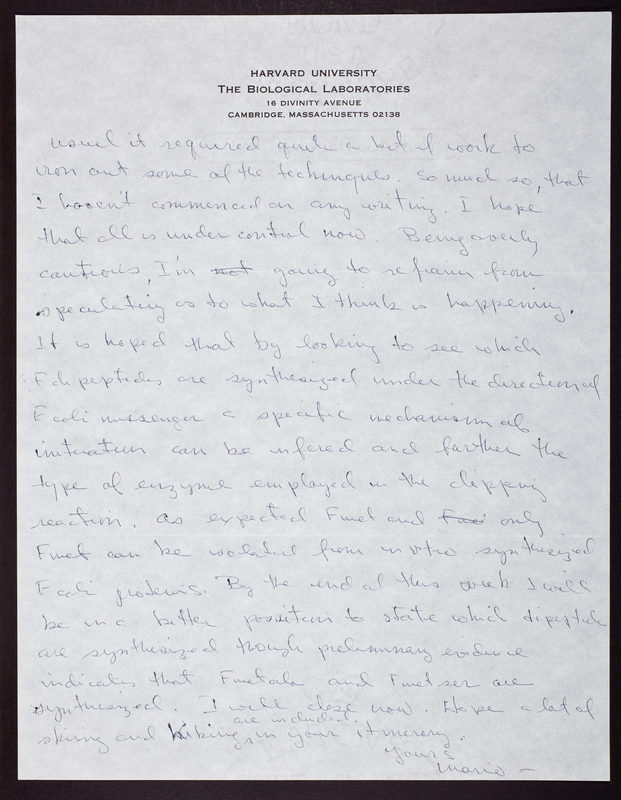 HARVARD UNIVERSITY
THE BIOLOGICAL LABORATORIES
16 DIVINITY AVENUE
CAMBRIDGE, MASSACHUSETTS 02138
usual it required quite a bit of work to
iron out some of the techniques. So much so, that
I haven't commenced on any writing. I hope
that all is under control now. Being overly
cautious, I'm not going to refrain from
speculating as to what I think is happening.
It is hoped that by looking to see which
F dipeptides are synthesized under the direction of
E coli messenger a specific mechanism of
initiation can be infered and further the
type of enzyme employed in the clipping
reaction. As expected Fmet and only
Fmet can be isolated from in vitro synthesized
E coli proteins. By the end of this week I will
be in a better position to state which dipeptide
are synthesized though preliminary evidence
indicates that Fmetala and Fmetser are
synthesized. I will close now. Hope a lot of
skiing and hiking are included in your itinerary.
Yours
Mario -